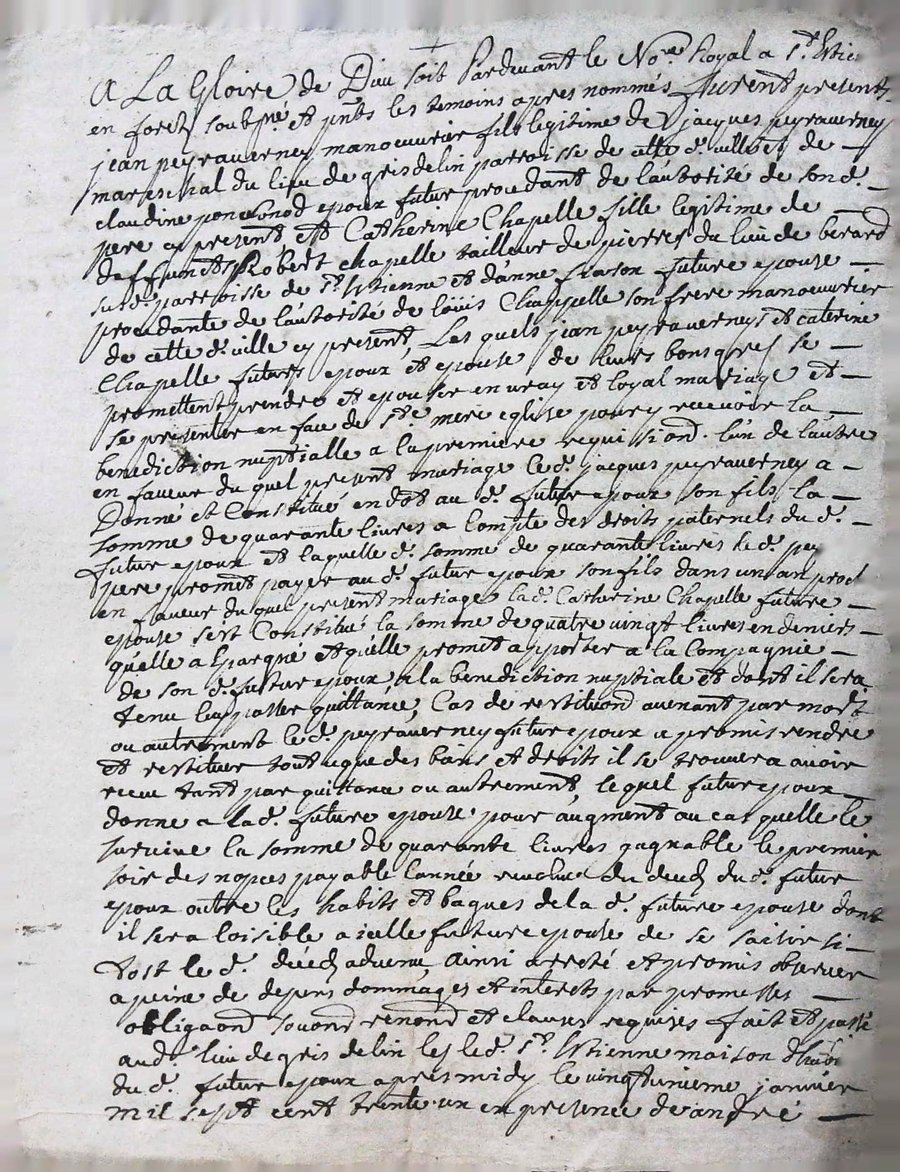 A La Gloire de Dieu soit Pardevant le No.re Royal a S.t Etie
en forez soubsné et pnts les temoins apres nommés furent presents
jean peyraverney manoeuvrier fils legitime de jacques peyraverney
mareschal du lieu de grisdelin parroisse de cette d. ville et de
claudine poncebnod epoux futur procedant de lautorite de son d.
pere cy present et Catherine Chapelle fille legitime de
deffunct Robert chapelle tailleur de pierres du lieu de berard
susd. parroisse de S.t Etienne et danne epouse future
procedante de lautorité de loüis Chappelle son frere manoeuvrier
de cette d. ville cy present, Les quels jean peyraverney et caterine
Chapelle futurs epoux et epouse de leurs bons gres se
promettent prendre et epouser en vray et loyal mariage et
se presenter en face de S.te mere eglise pour y recevoir la
benediction nuptialle a la premiere requisiond. lun de lautre
en faveur du quel present mariage le d. jacques peyraverney a
Donné et Constitué en dot au d. futur epoux son fils la
somme de quarante livres a Compte des droits paternels du d.
futur epoux et laquelle d. somme de quarante livres le d. pey
pere promet payer au d. futur epoux son fils dans un an proch
en faveur du quel present mariage la d. Catherine Chapelle future
epouse sest Constitué la somme de quatre vingt livres en deniers
quelle a Epargné et quelle promet apporter a la Compagnie
de son d. futur epoux a la benediction nuptiale et dont il sera
tenu luy passer quittance, Cas de restituond avenant par mort
ou autrement le d. peyraverney futur epoux a promis rendre
et restituer tout ce que des biens et droits il se trouvera avoir
receu tant par quittance ou autrement, lequel futur epoux
donne a lad. future epouse pour augment au cas quelle le
survive la somme de quarante livres gagnable le premier
soir des nopces payable lannée revolue du deced du d. futur
epoux outre les habits et bagues de la d. future epouse dont
il sera loisible a icelle future epouse de se saisir si
tost le d. deced advenu, ainsi arreté et promis observer
a peine de depens dommages et interets par promesses
obligaond souond renond et clauses requises fait et passé
aud. lieu de gris delin les le d. S.t Etienne maison
du d. futur epoux apres midy le vingtunieme janvier
mil sept cent trente un en presence de andré